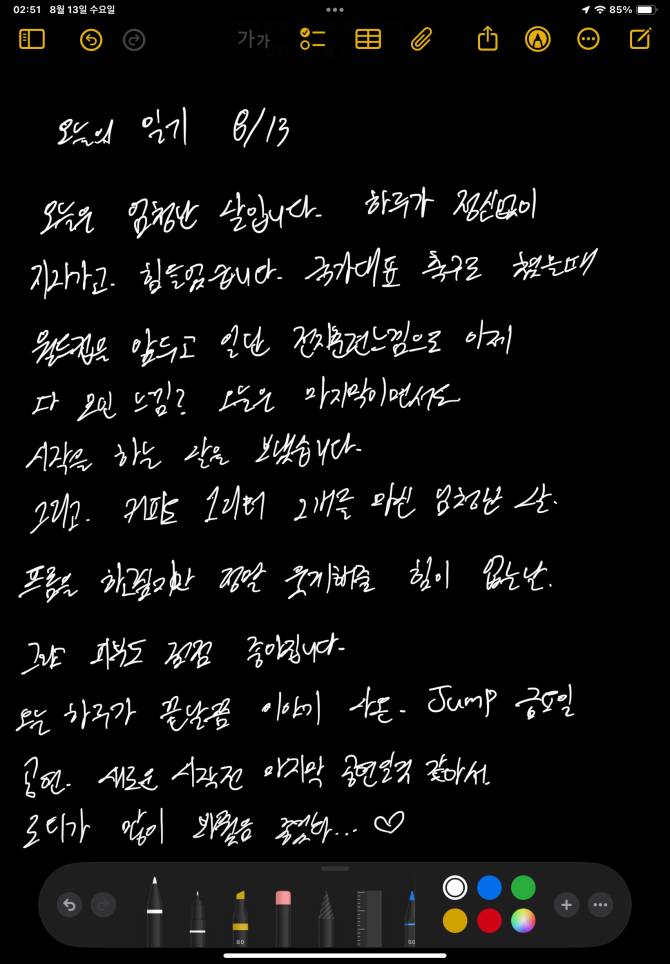 02:51 8월 13일 수요일
85%
가가
오늘의 일기 8/13
오늘은 엄청난 날입니다. 하루가 정신없이
지나가고. 힘들었습니다. 국가대표 축구로 쳤을때
월드컵을 앞두고 일단 전지훈련느낌으로 이제
다 모인 느낌? 오늘은 마지막이면서도
시작을 하는 날을 보냈습니다.
그리고. 커피도 1리터 2개를 마신 엄청난 날.
프롬을 하고싶지만 정말 웃게해줄 힘이 없는 난.
그래도 피부도 점점 좋아집니다.
오늘 하루가 끝날쯤 이야기 나온. Jump 금요일
공연. 새로운 시작전 마지막 공연일것 같아서.
로티가 많이 봐줬음 좋겠다... ♡